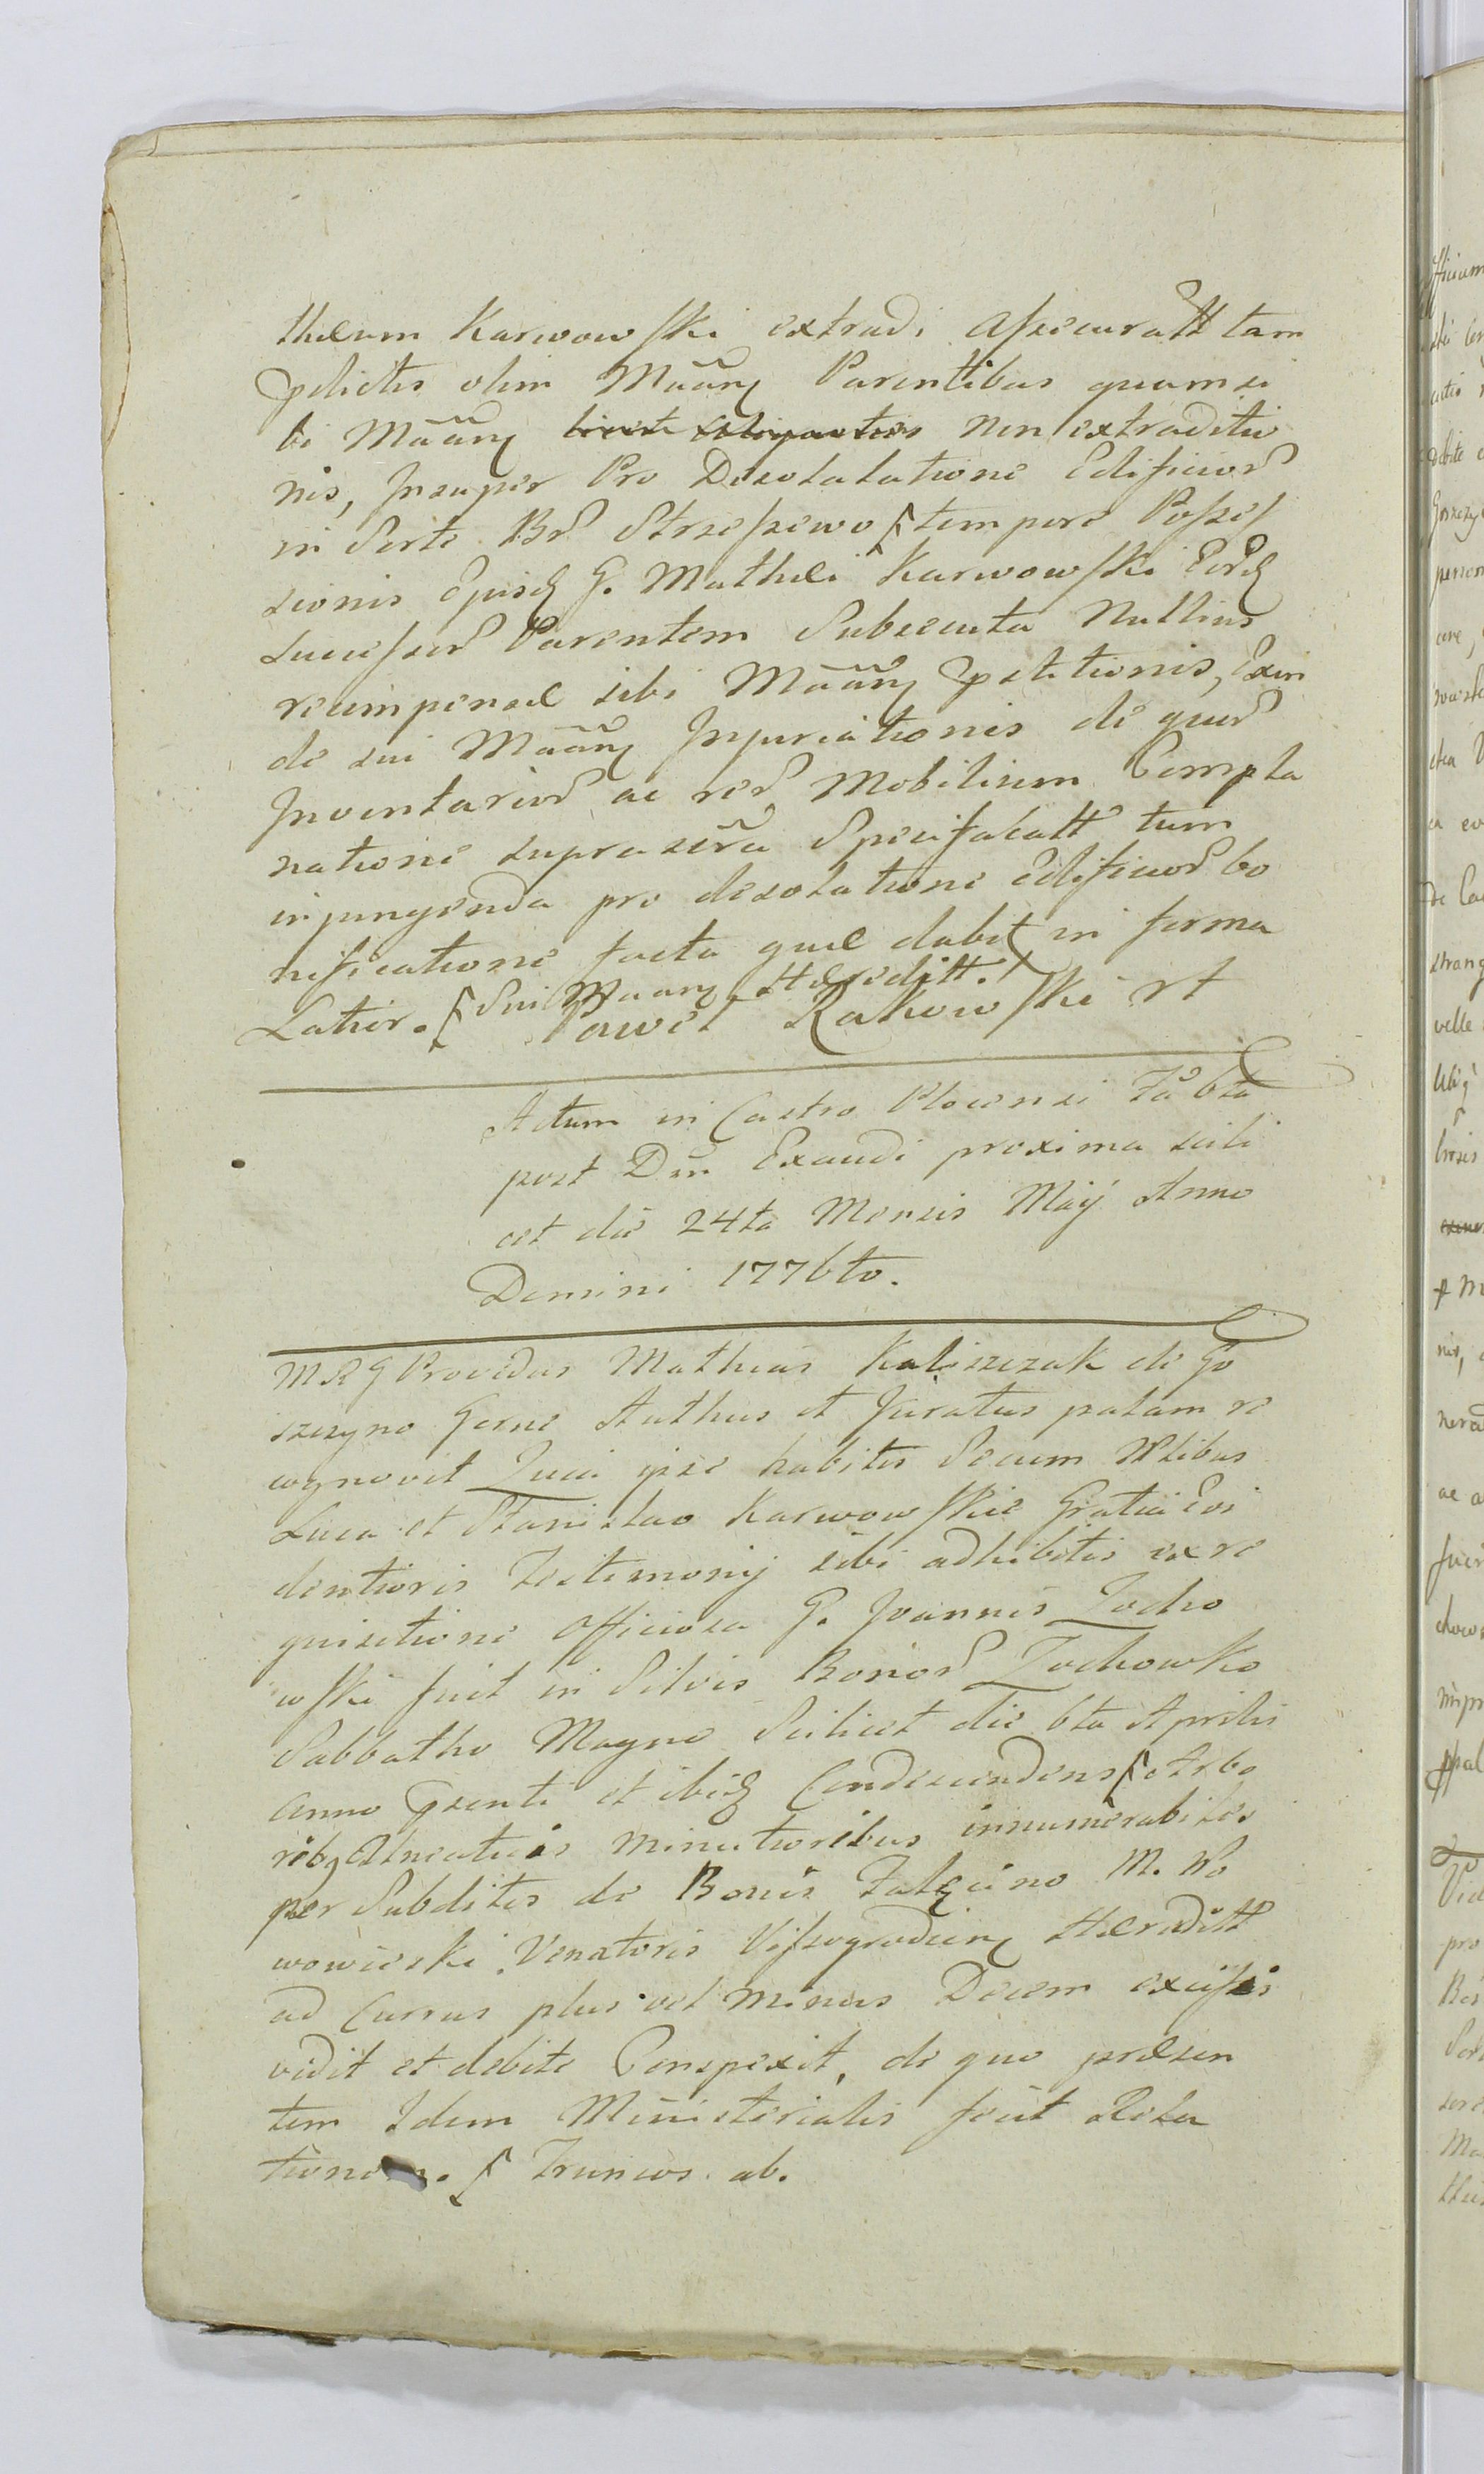 thæum Karwowski extradi Assecuratt tam
pdictis olim Mããnẓ Parentibus quam si
bi Mããnẓ non extraditio
nis, Insuper Pro Desolatatione Edificior
in Sorte Br Strzeszewo tempore Posses
sionis Ejusd G. Mathei Karwowski Eord
Sucessor Parentem Subsecuta Nullius
recimpensæ sibi Mããnẓ petitionis, Exin
de sui Mããnẓ Injuriationis de quor
Inventarior ac rer Mobilium Compla
natione suprascrã Specifakatt tum
injungenda pro desolatione Edificior bo
nificatione facta quæ dabit in forma
Latior. Sui Mããnẓ Hæreditt.
Pawel Rakowski rt
Actum in Castro Plocensi Fã 6ta
post Dñi Exaudi proxima scili
cet die 24ta Mensis Maÿ Anno
Domini 1776to.
MRG Providus Mathias Kaliszczak de Go
szczyno Gorne Authus et Juratus palam re
cognovit Quia ipse habitis Secum Nblibus
Luca et Stanislao Karwowskie Gratia Evi
dentioris Testimonij sibi adhibitis ex re
quisitione officiosa G. Joannis Zocho
wski fuit in Silvis Bonor Zochowko
Sabbatho Magno Scilicet die 6ta Aprilis
Anno Præsenti et ibid Condescendens Arbo
rib minutioribus innumerabiles
per Subditos de Bonis Falęcino M. No
wowieski Venatoris Vissogrodien Hæreditt
ad Currus plus vel minus Decem excissis
vidit et debite Conspexit, de quo præsen
tem Idem Ministerialis fecit Rela
tionem. Truncos ab.